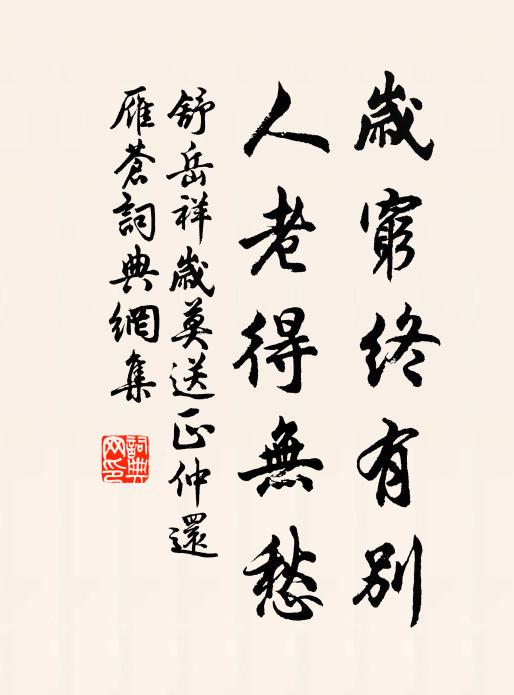 歲窮終有別
人老得無愁
舒岳祥歲莫送正仲還
雁蒼詞典網集
詞典網印